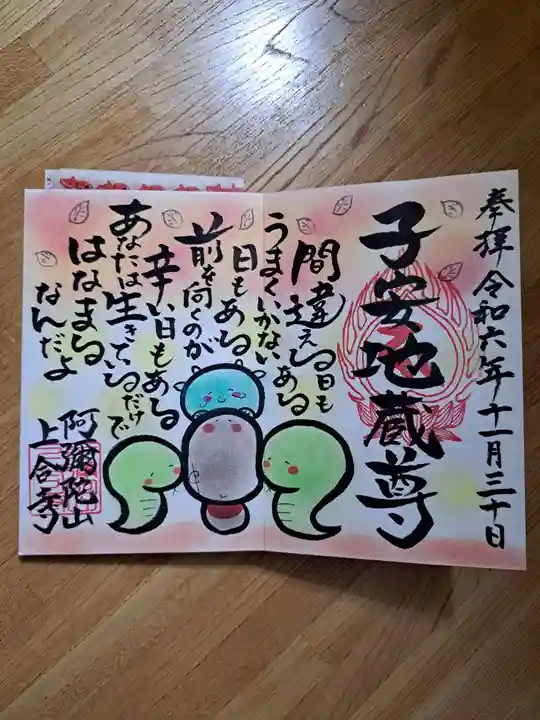 奉拝 令和六年十一月三十日
子安地蔵尊
間違える日もある
うまくいかない
日もある
前を向くのが
辛い日もある
あなたは生きているだけで
はなまる
なんだよ
阿彌陀山
上合寺